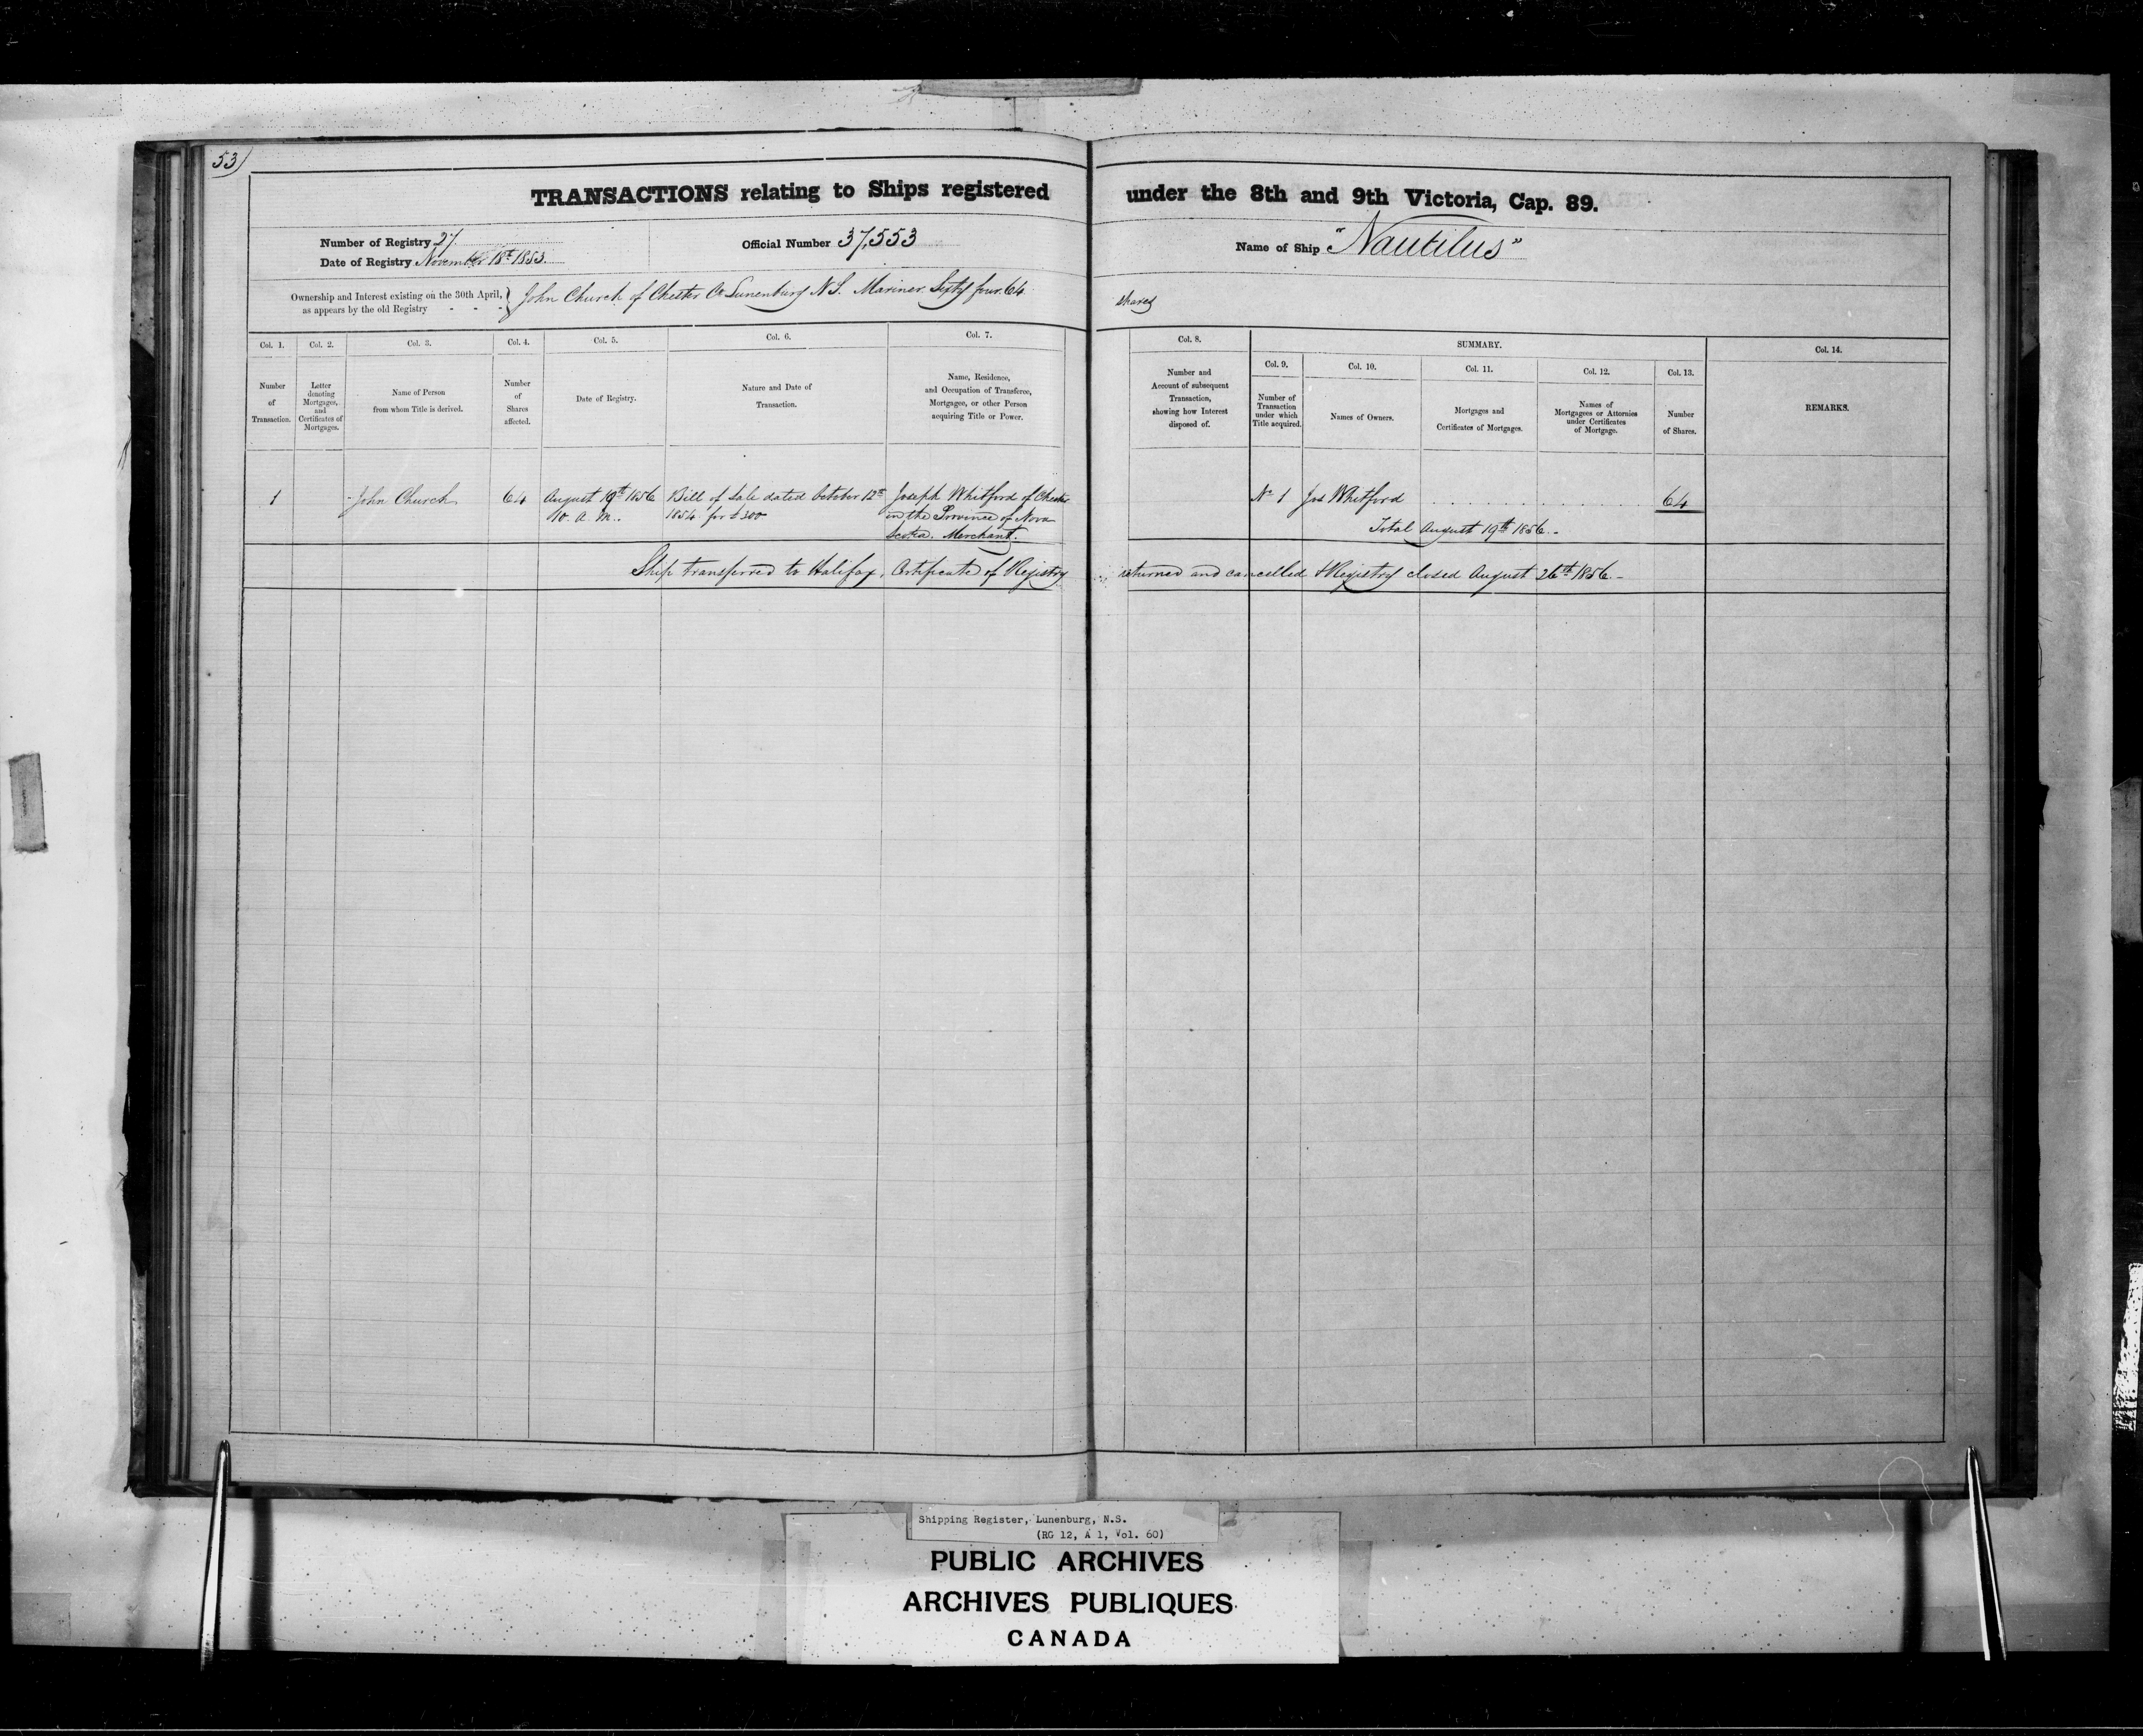 53
TRANSACTIONS relating to Ships registered under the 8th and 9th Victoria, Cap. 89.
Number of Registry 27
Date of Registry November 18th 1853.
Official Number 37,553
Name of Ship "Nautilus"
Ownership and Interest existing on the 30th April, as appears by the old Registry - - -
John Church of Chester Co Lunenburg N S. Mariner. Sixty four. 64 shares
Col. 1.
Number of Transaction.
Col. 2.
Letter denoting Mortgages, and Certificates of Mortgages.
Col. 3.
Name of Person from whom Title is derived.
Col. 4.
Number of Shares affected.
Col. 5.
Date of Registry.
Col. 6.
Nature and Date of Transaction.
Col. 7.
Name, Residence, and Occupation of Transferee, Mortgagee, or other Person acquiring Title or Power.
Col. 8.
Number and Account of subsequent Transaction, showing how Interest disposed of.
SUMMARY.
Col. 9.
Number of Transaction under which Title acquired.
Col. 10.
Names of Owners.
Col. 11.
Mortgages and Certificates of Mortgages.
Col. 12.
Names of Mortgagees or Attornies under Certificates of Mortgage.
Col. 13.
Number of Shares.
Col. 14.
REMARKS.
1 John Church 64 August 19th 1856 Bill of Sale dated October 12th Joseph Whitford of Chester No 1 Jos Whitford 64
10. A. M. 1854 for £300 in the Province of Nova
Scotia. Merchant. Total August 19th 1856.
Ship transferred to Halifax. Certificate of Registry returned and cancelled & Registry closed August 26th 1856.
Shipping Register, Lunenburg, N.S.
(RG 12, A 1, Vol. 60)
PUBLIC ARCHIVES
ARCHIVES PUBLIQUES
CANADA